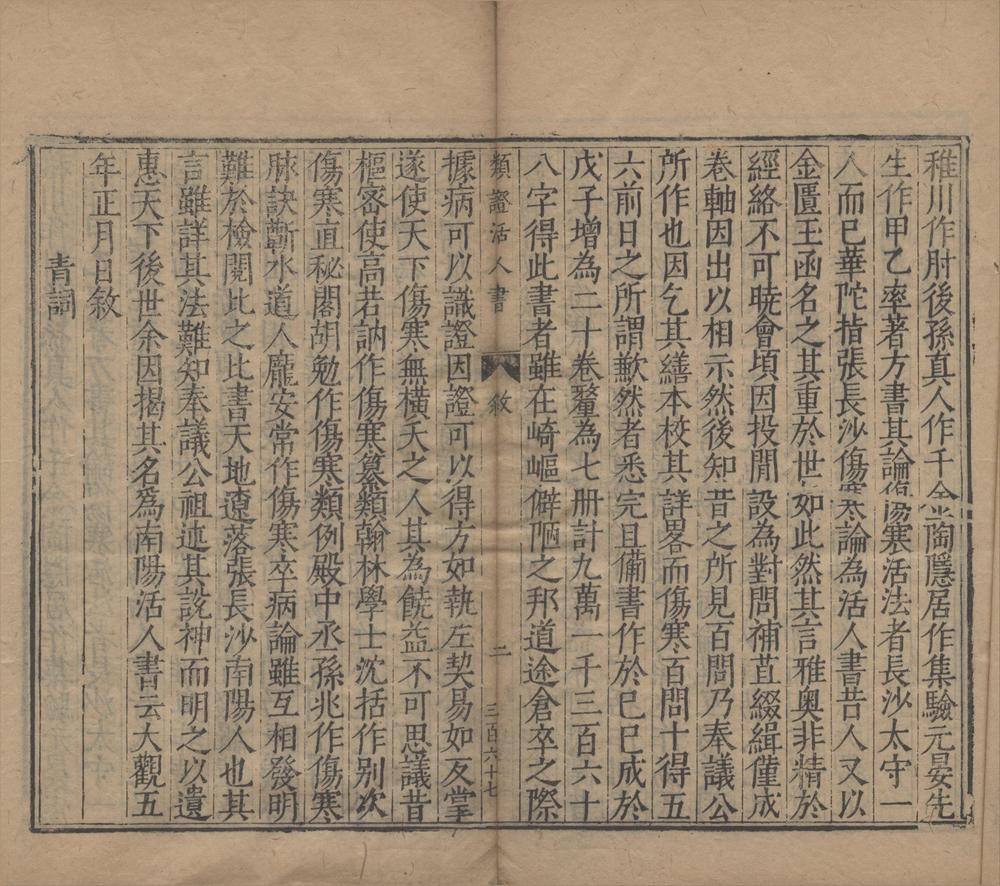 稚川作肘後孫真人作千金陶隱居作集驗元晏先
生作甲乙率著方書其論傷寒活法者長沙太守一
人而已華陀指張長沙傷寒論為活人書昔人又以
金匱玉函名之其重於世如此然其言雅奥非精於
經絡不可曉會頃因投閒設為對問補苴綴緝僅成
卷軸因出以相示然後知昔之所見百問乃奉議公
所作也因乞其繕本校其詳畧而傷寒百問十得五
六前日之所謂歉然者悉完且備書作於已巳成於
戊子增為二十卷釐為七册計九萬一千三百六十
八字得此書者雖在崎嶇僻陋之邦道途倉卒之際
類證活人書 敘 二 三百六十七
據病可以識證因證可以得方如執左契易如反掌
遂使天下傷寒無橫夭之人其為饒益不可思議昔
樞密使高若訥作傷寒纂類翰林學士沈括作别次
傷寒直秘閣胡勉作傷寒類例殿中丞孫兆作傷寒
脉訣蘄水道人龐安常作傷寒卒病論雖互相發明
難於檢閱比之此書天地遼落張長沙南陽人也其
言雖詳其法難知奉議公祖述其說神而明之以遺
惠天下後世余因揭其名爲南陽活人書云大觀五
年正月日敘
青詞